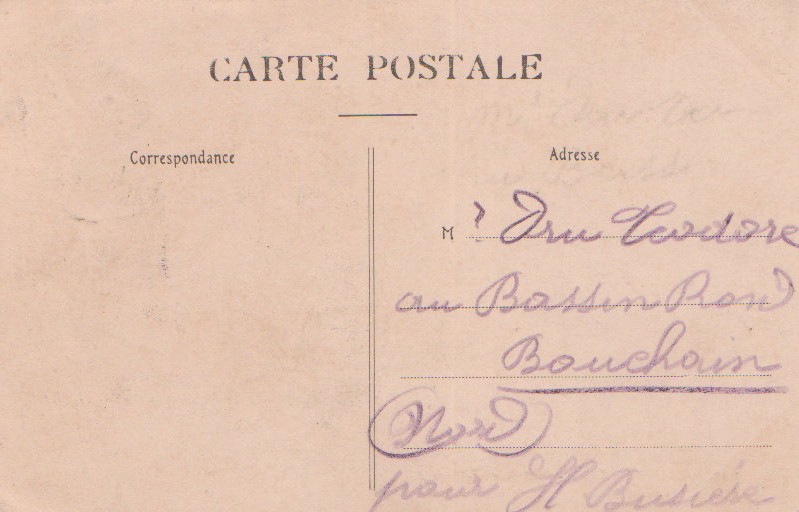 CARTE POSTALE
Correspondance
Adresse
M r Dru Teodore
au Bassin Rond
Bouchain
(Nord)
pour H Busière